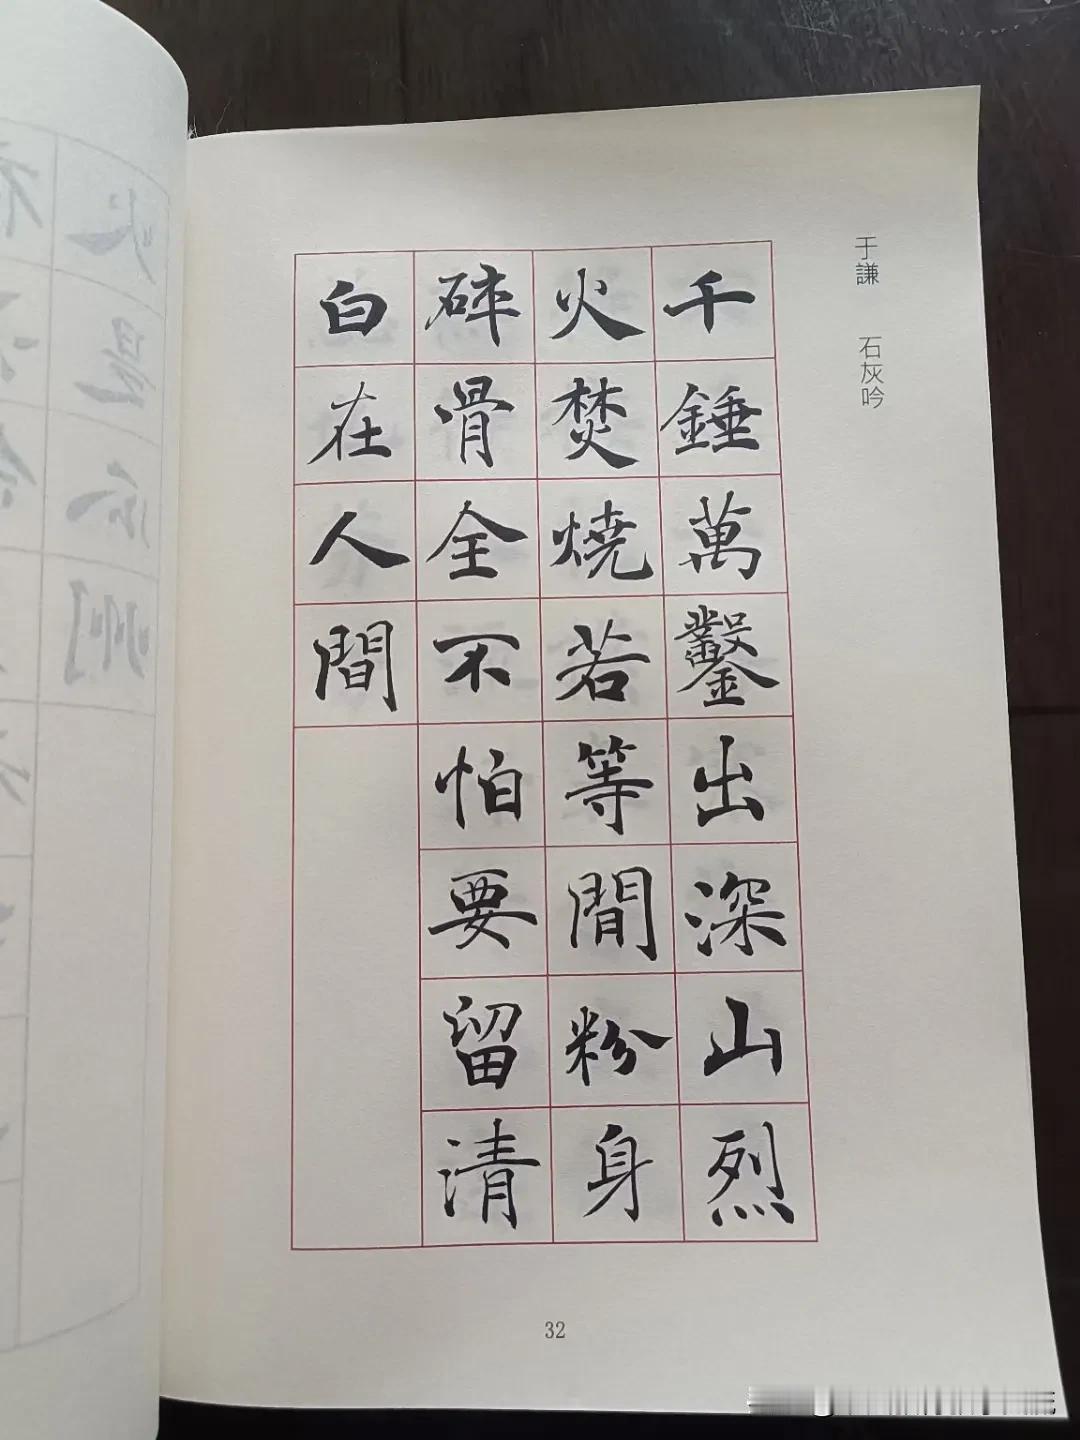 于謙 石灰吟
千錘萬鑿出深山烈
火焚燒若等間粉身
碎骨全不怕要留清
白在人間
32